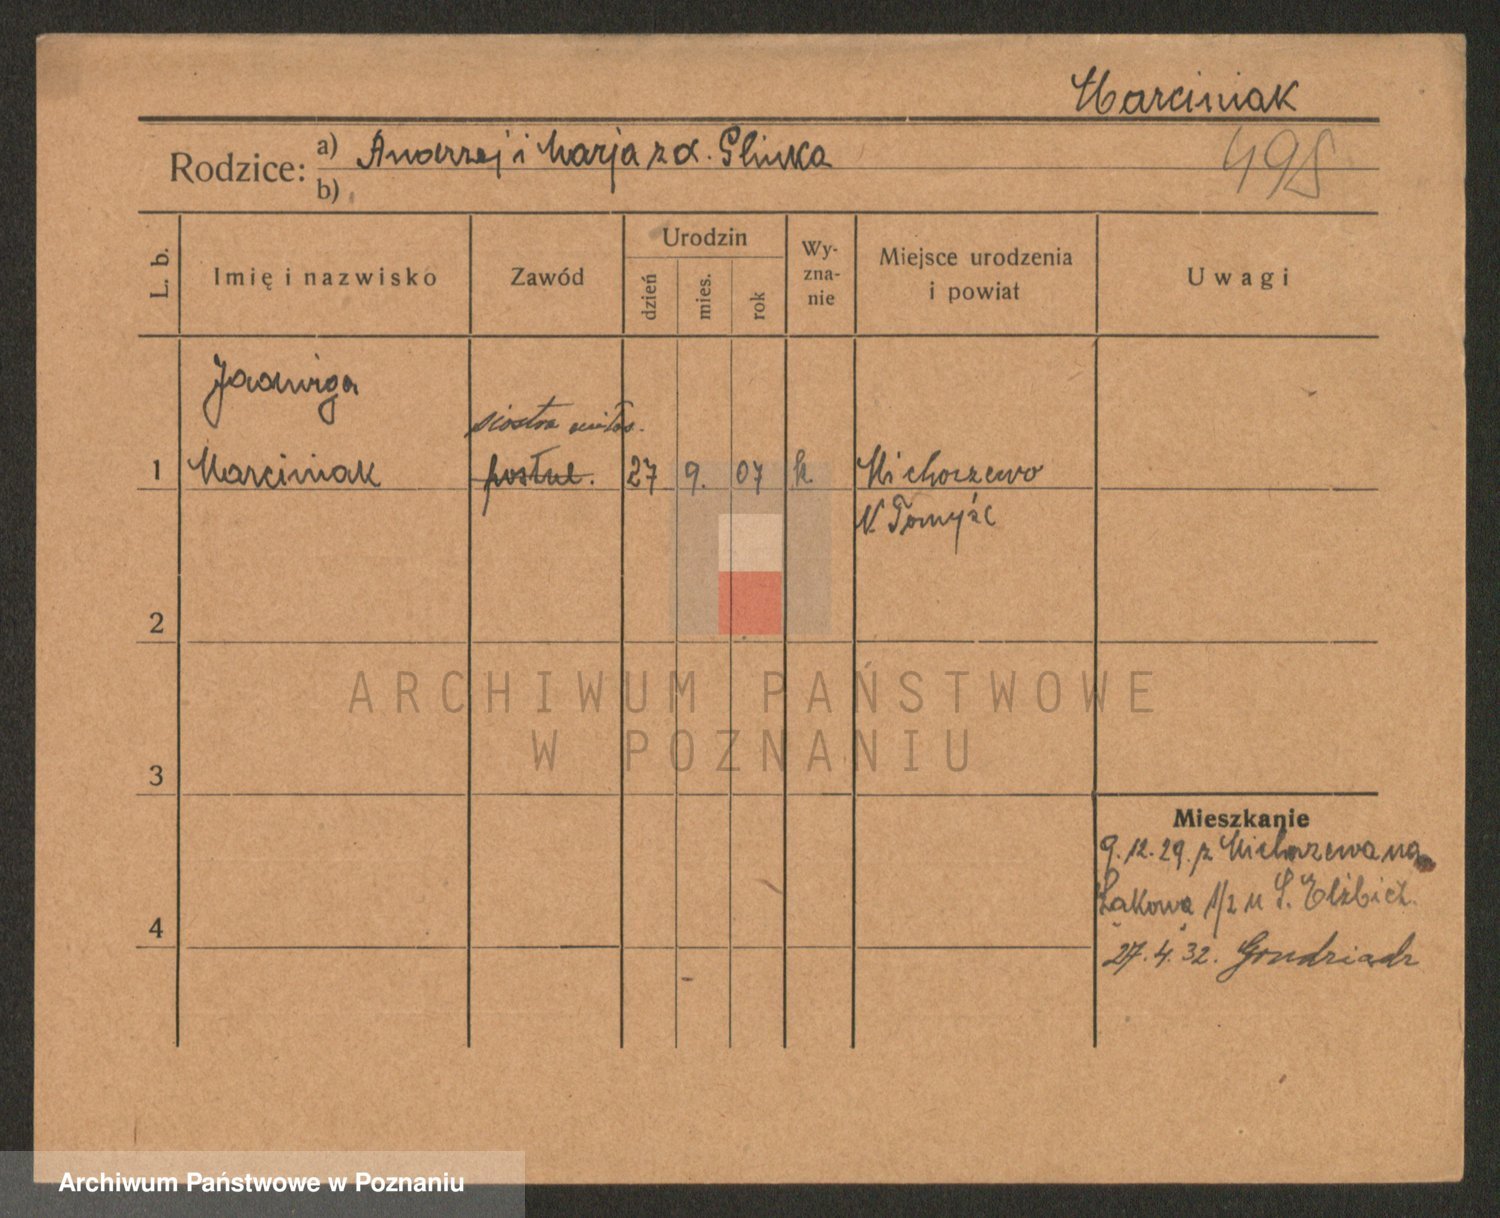 Marciniak
498
Rodzice: a) Andrzej i Marja z d. Glinka
b)
L. b.
Imię i nazwisko
Zawód
Urodzin
dzień
mies.
rok
Wy-
zna-
nie
Miejsce urodzenia
i powiat
Uwagi
Jadwiga
siostra miłos.
1 Marciniak postul. 27 9. 07 k. Michorzewo
N. Tomyśl
2
3
4
Mieszkanie
9.12.29. z Michorzewa na
Łąkową 1/2 u S. Elżbiet.
27.4.32. Grudziądz
ARCHIWUM PAŃSTWOWE
W POZNANIU
Archiwum Państwowe w Poznaniu